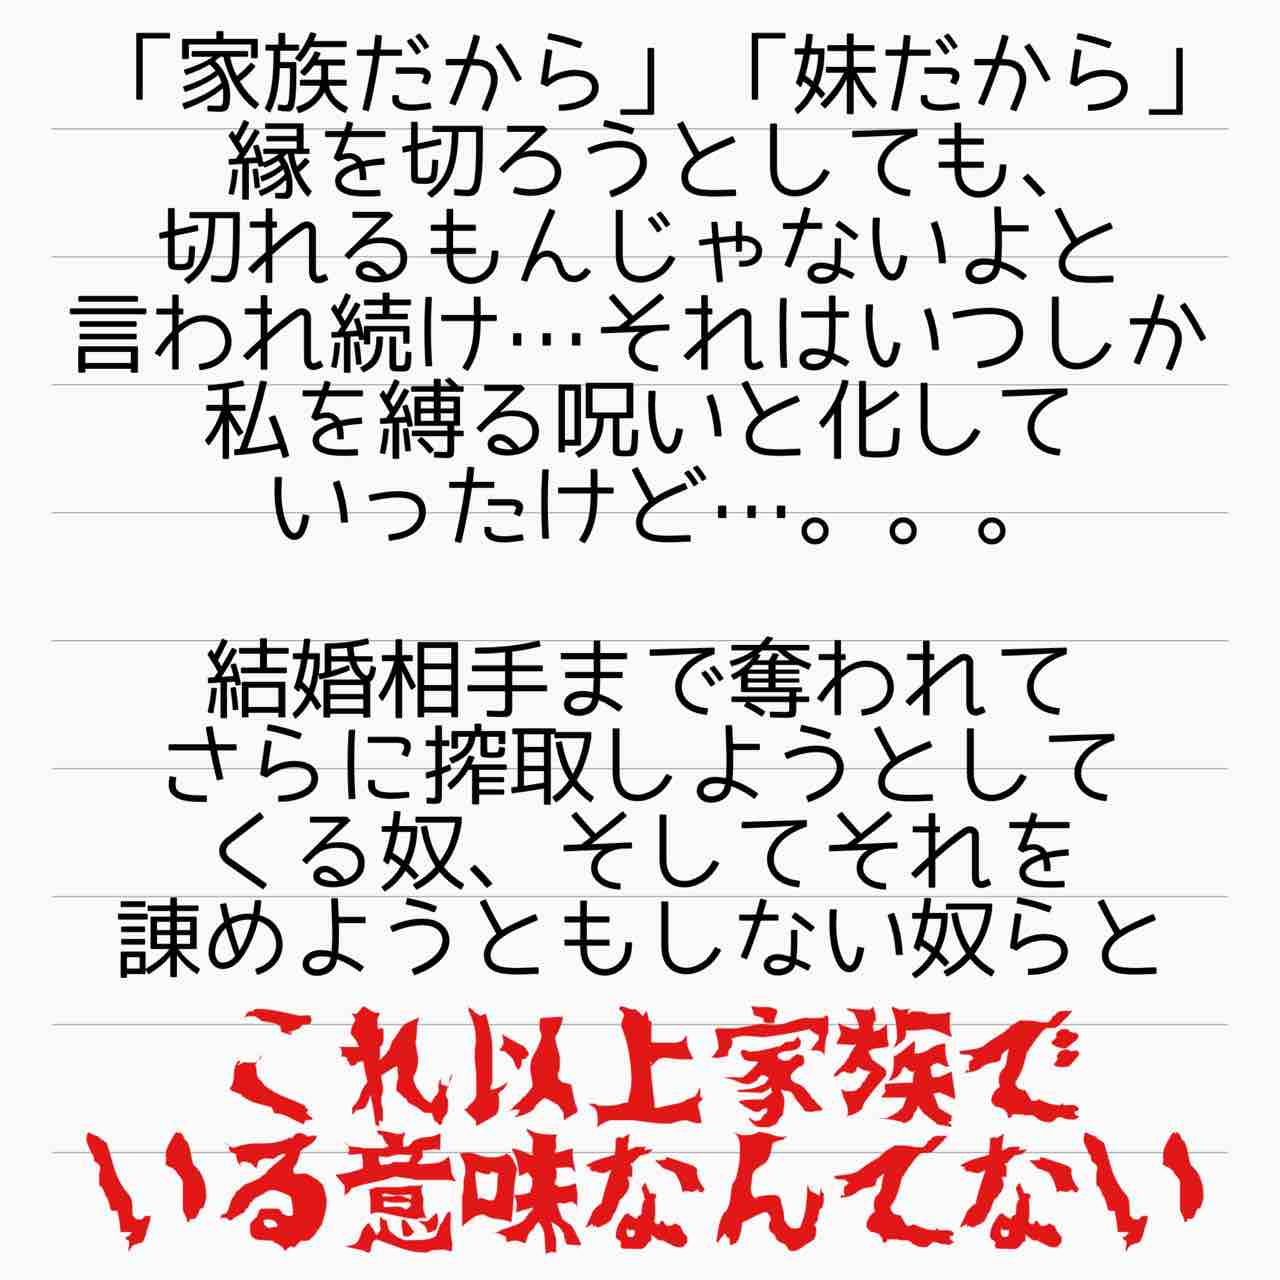 「家族だから」「妹だから」
縁を切ろうとしても、
切れるもんじゃないよと
言われ続け…それはいつしか
私を縛る呪いと化して
いったけど…。。。
結婚相手まで奪われて
さらに搾取しようとして
くる奴、そしてそれを
諌めようともしない奴らと
これ以上家族で
いる意味なんてない